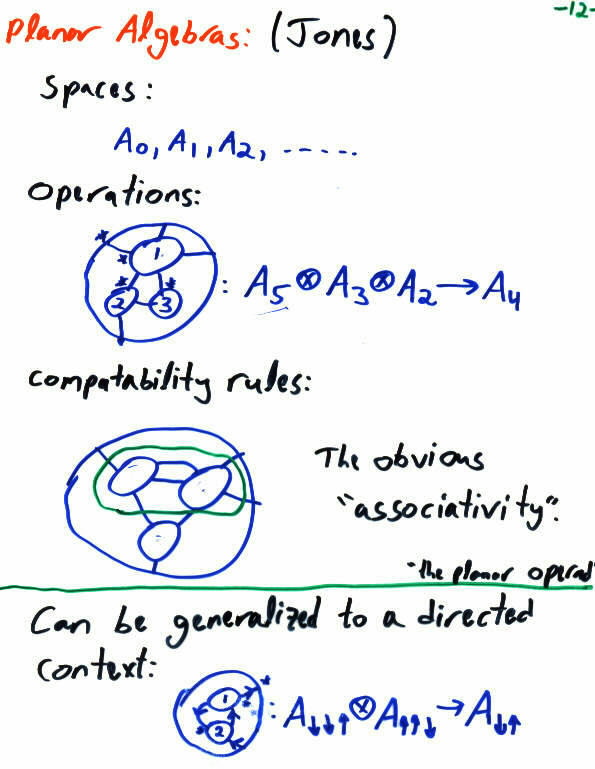 -12-
Planar Algebras: (Jones)
Spaces:
A₀, A₁, A₂, ------
Operations:
* * 1 * * 2 3 : A₅ ⊗ A₃ ⊗ A₂ → A₄
Compatability rules:
The obvious
"associativity".
"the planar operad"
Can be generalized to a directed
context:
1 * * * 2 : A↓↓↑ ⊗ A↑↑↓ → A↓↑